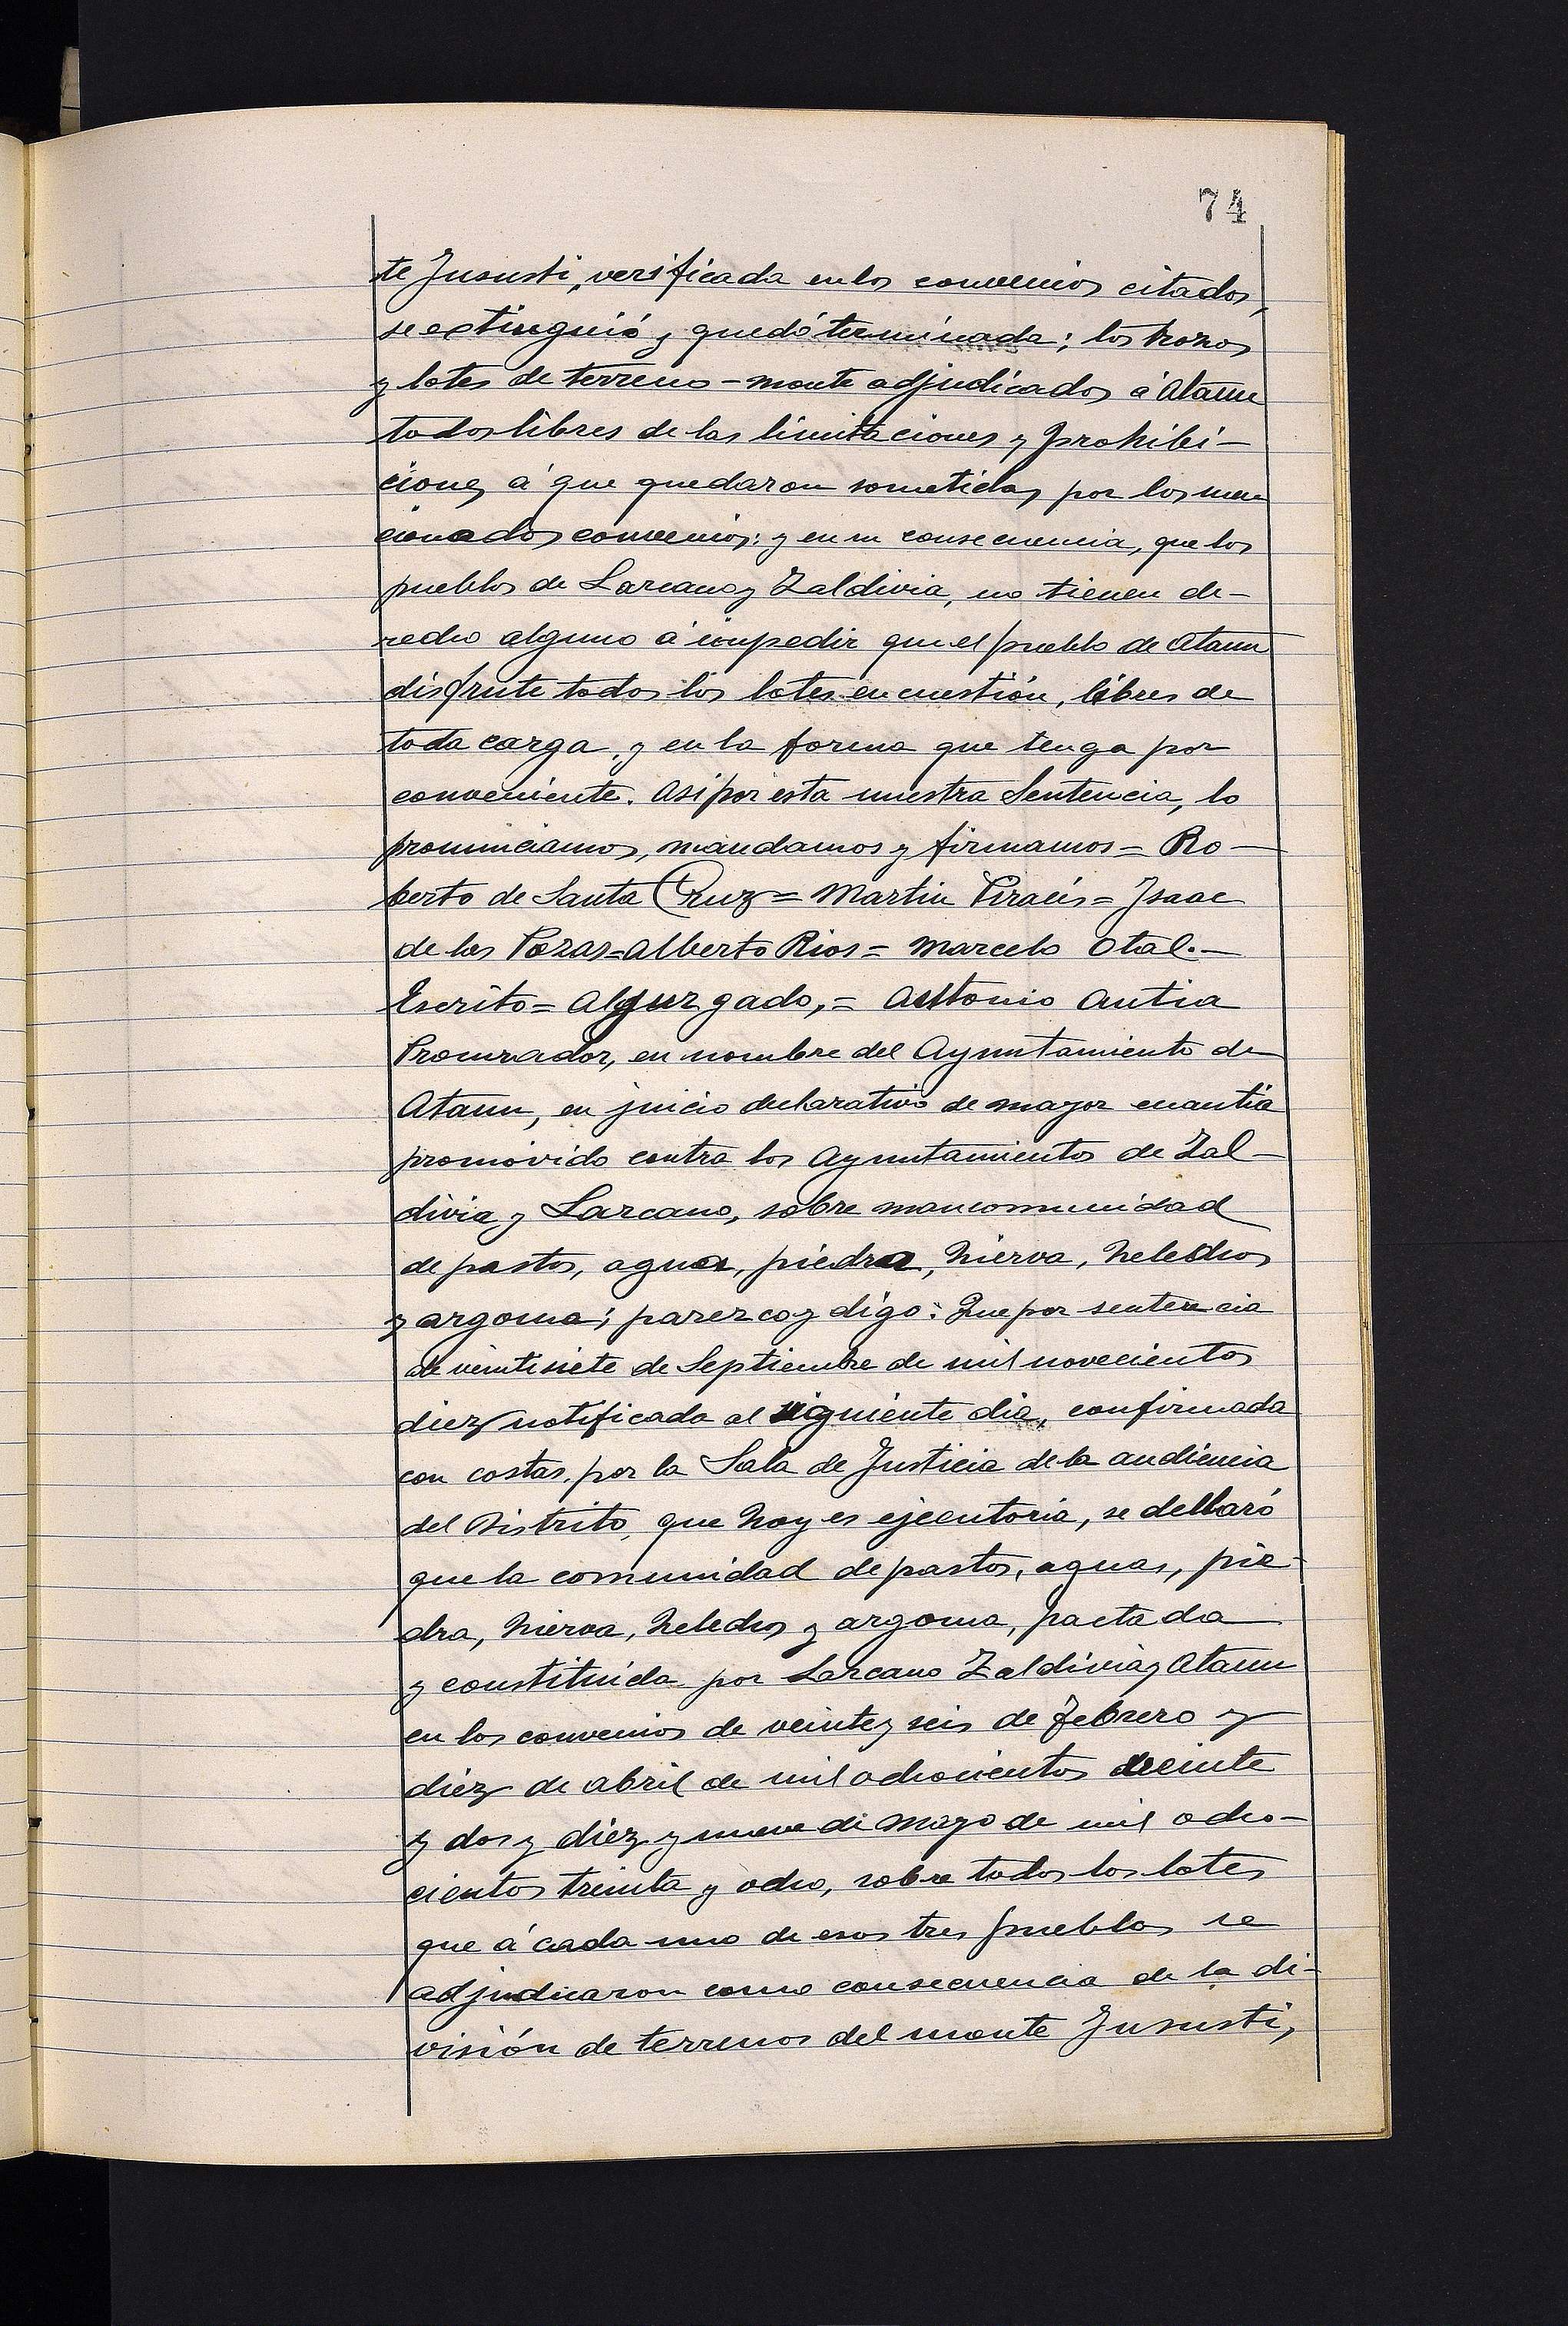 74
te Jususti, verificada en los convenios citados,
se extinguió y quedó terminada; los trozos
y lotes de terreno - monte adjudicados á Ataun
todos libres de las limitaciones y prohibi-
ciones á que quedaron sometidos por los men
cionados convenios: y en su consecuencia, que los
pueblos de Lazcano y Zaldivia, no tienen de-
recho alguno á impedir que el pueblo de Ataun
disfrute todos los lotes en cuestión, libres de
toda carga, y en la forma que tenga por
conveniente. Asi por esta nuestra Sentencia, lo
pronunciamos, mandamos y firmamos = Ro-
berto de Santa Cruz = Martin Piraces = Isaac
de las Pozas = Alberto Rios = Marcelo Otal.-
Escrito = Al Juzgado, = Antonio Antia
Procurador, en nombre del Ayuntamiento de
Ataun, en juicio declarativo de mayor cuantia
promovido contra los Ayuntamientos de Zal-
divia y Lazcano, sobre mancomunidad
de pastos, aguas, piedra, hierva, helechos
y argoma; parezco y digo: Que por sentencia
de veintisiete de Septiembre de mil novecientos
diez notificada al siguiente dia, confirmada
con costas, por la Sala de Justicia de la audiencia
del Distrito, que hoy es ejecutoria, se declaró
que la comunidad de pastos, aguas, pie-
dra, hierva, helechos y argoma, pactada
y constituida por Lazcano Zaldivia y Ataun
en los convenios de veinte y seis de Febrero y
diez de abril de mil ochocientos veinte
y dos y diez y nueve de Mayo de mil ocho-
cientos treinta y ocho, sobre todos los lotes
que á cada uno de esos tres pueblos se
adjudicaron como consecuencia de la di-
visión de terrenos del monte Jususti,